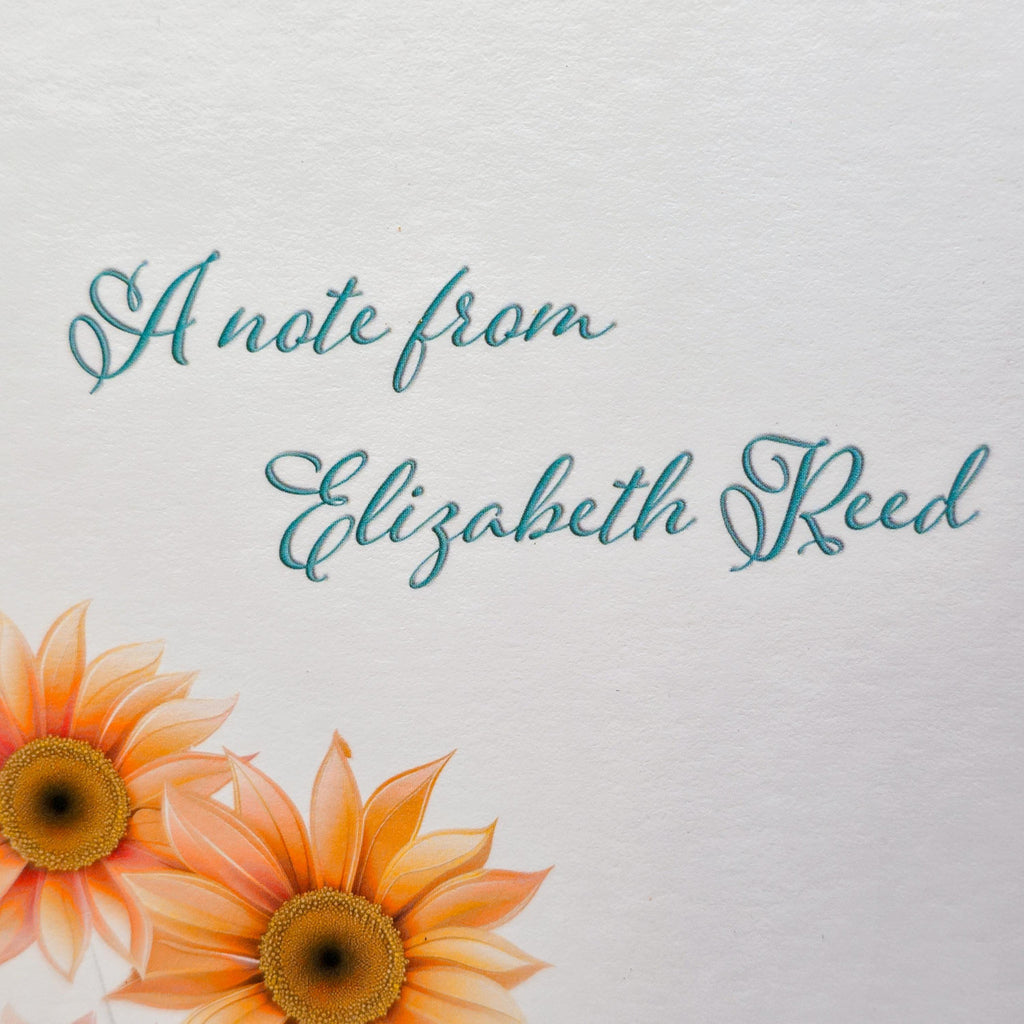 A note from
Elizabeth Reed